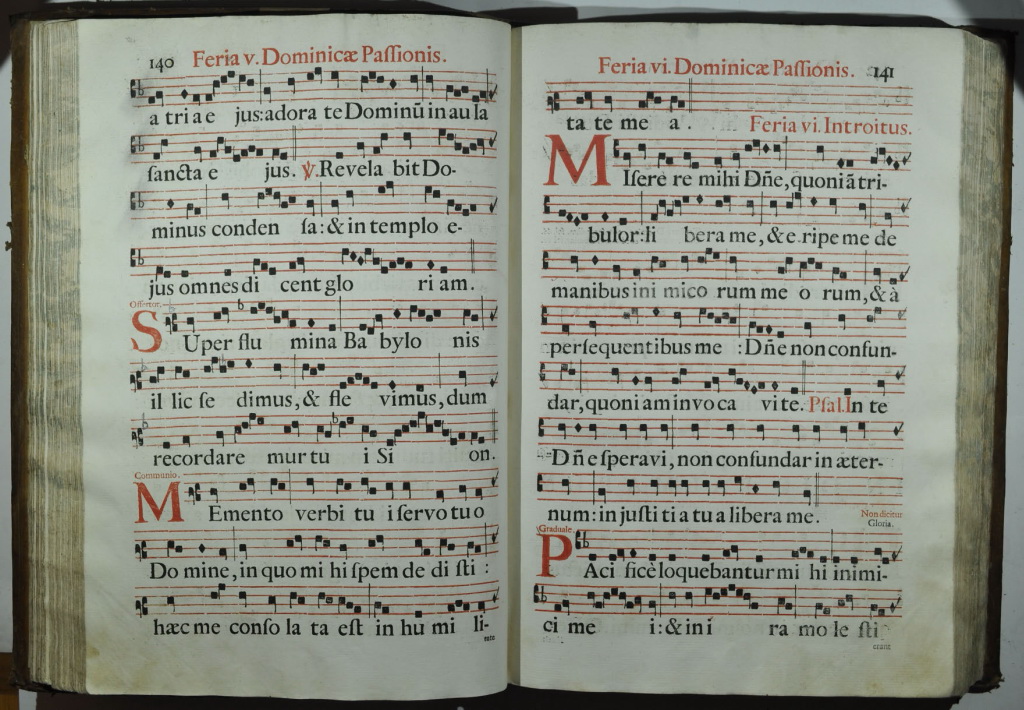 140 Feria v. Dominicæ Paſſionis.
a tri a e jus: adora te Dominū in au la
ſancta e jus. ℣. Revela bit Do-
minus conden ſa: & in templo e-
jus omnes di cent glo ri am.
Offertor.
SUper flu mina Ba bylo nis
il lic ſe dimus, & fle vimus, dum
recordare mur tu i Si on.
Communio.
MEmento verbi tu i ſervo tu o
Do mine, in quo mi hi ſpem de di ſti :
hæc me conſo la ta eſt in hu mi li-
tate
Feria vi. Dominicæ Paſſionis. 141
ta te me a. Feria vi. Introitus.
MIſere re mihi Dñe, quoniā tri-
bulor: li bera me, & e ripe me de
manibus ini mico rum me o rum, & à
perſequentibus me : Dñe non confun-
dar, quoni am invo ca vi te. Pſal. In te
Dñe ſperavi, non confundar in æter-
num: in juſti ti a tu a libera me. Non dicitur
Gloria.
Graduale.
PAci ficè loquebantur mi hi inimi-
ci me i: & in i ra mo le ſti
erant